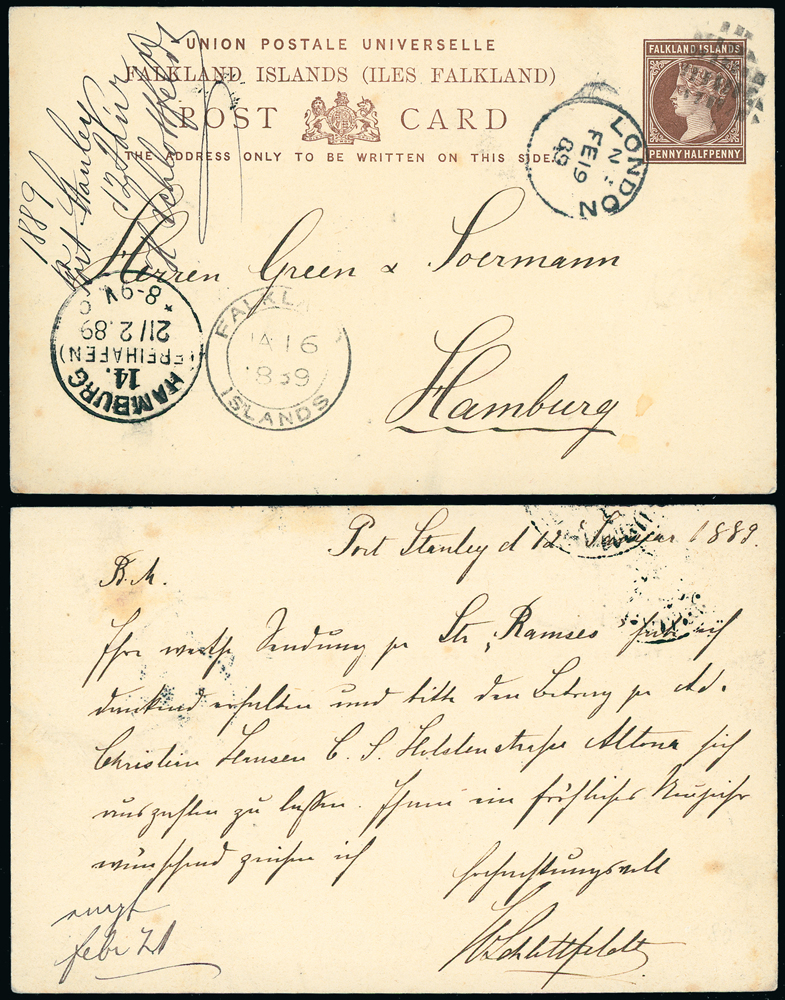 UNION POSTALE UNIVERSELLE
FALKLAND ISLANDS (ILES FALKLAND)
POST CARD
THE ADDRESS ONLY TO BE WRITTEN ON THIS SIDE
FALKLAND ISLANDS
PENNY HALFPENNY
LONDON
N
FE 19
89
1889
Port Stanley
12
Herren Green & Soermann
Hamburg
HAMBURG
14.
(FREIHAFEN)
21/2.89
* 8-9V
FALKLA
JA 16
1889
ISLANDS
Port Stanley d 12 Januar 1889.
B.M.
Ihre werthe Sendung per Str „Ramses" habe ich
dankend erhalten und bitte den Betrag per Ad.
Christian Hansen C. S. Holstenstraße Altona sich
auszahlen zu lassen. Ihnen ein fröhliches Neujahr
wünschend zeichne ich
hochachtungsvoll
W Schlottfeldt
empf
febr 21